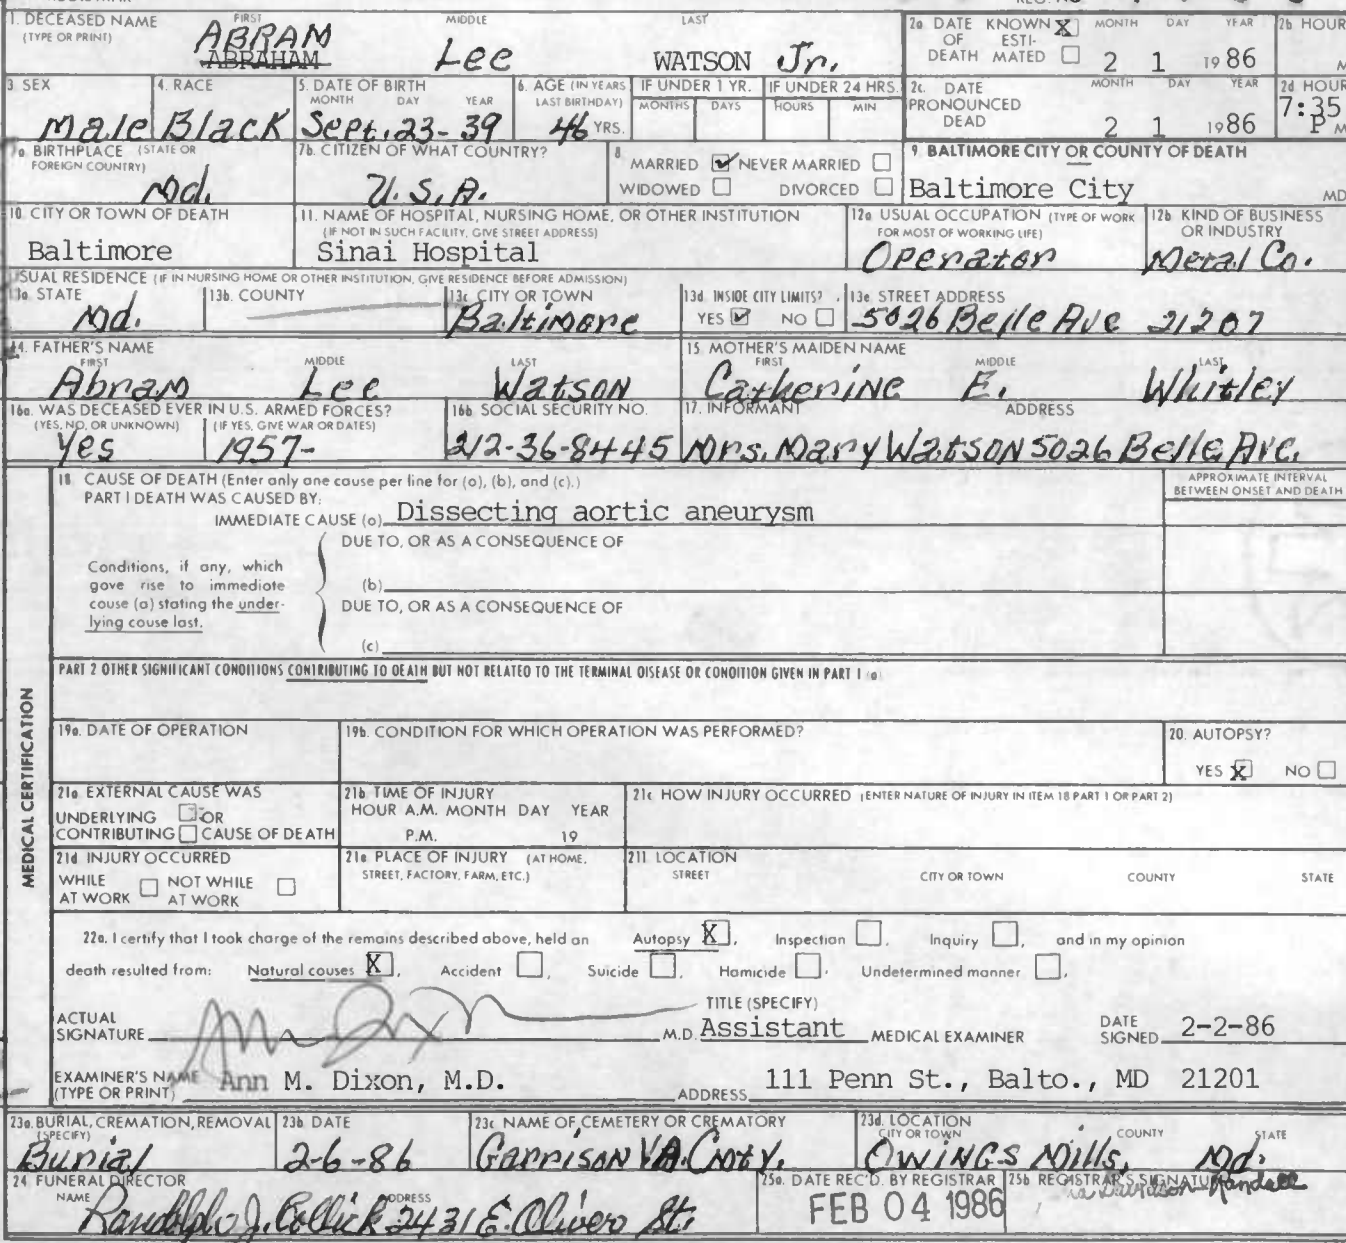 1. DECEASED NAME FIRST MIDDLE LAST
(TYPE OR PRINT)
ABRAM Lee WATSON Jr.
ABRAHAM
2a. DATE OF DEATH KNOWN X ESTIMATED MONTH DAY YEAR
2 1 1986
2b. HOUR M
3. SEX
Male
4. RACE
Black
5. DATE OF BIRTH
MONTH DAY YEAR
Sept. 23-39
6. AGE (IN YEARS LAST BIRTHDAY)
46 YRS.
IF UNDER 1 YR. MONTHS DAYS
IF UNDER 24 HRS. HOURS MIN
2c. DATE PRONOUNCED DEAD MONTH DAY YEAR
2 1 1986
2d. HOUR
7:35 P M
7a. BIRTHPLACE (STATE OR FOREIGN COUNTRY)
Md.
7b. CITIZEN OF WHAT COUNTRY?
U.S.A.
8 MARRIED ✓ NEVER MARRIED
WIDOWED DIVORCED
9. BALTIMORE CITY OR COUNTY OF DEATH
Baltimore City MD
10. CITY OR TOWN OF DEATH
Baltimore
11. NAME OF HOSPITAL, NURSING HOME, OR OTHER INSTITUTION
(IF NOT IN SUCH FACILITY, GIVE STREET ADDRESS)
Sinai Hospital
12a. USUAL OCCUPATION (TYPE OF WORK FOR MOST OF WORKING LIFE)
Operator
12b. KIND OF BUSINESS OR INDUSTRY
Metal Co.
USUAL RESIDENCE (IF IN NURSING HOME OR OTHER INSTITUTION, GIVE RESIDENCE BEFORE ADMISSION)
13a. STATE
Md.
13b. COUNTY
13c. CITY OR TOWN
Baltimore
13d. INSIDE CITY LIMITS?
YES ✓ NO
13e. STREET ADDRESS
5026 Belle Ave 21207
14. FATHER'S NAME
FIRST MIDDLE LAST
Abram Lee Watson
15. MOTHER'S MAIDEN NAME
FIRST MIDDLE LAST
Catherine E. Whitley
16a. WAS DECEASED EVER IN U.S. ARMED FORCES?
(YES, NO, OR UNKNOWN) (IF YES, GIVE WAR OR DATES)
Yes 1957-
16b. SOCIAL SECURITY NO.
212-36-8445
17. INFORMANT ADDRESS
Mrs. Mary Watson 5026 Belle Ave.
MEDICAL CERTIFICATION
18. CAUSE OF DEATH (Enter only one cause per line for (a), (b), and (c).)
PART I DEATH WAS CAUSED BY:
APPROXIMATE INTERVAL BETWEEN ONSET AND DEATH
IMMEDIATE CAUSE (a) Dissecting aortic aneurysm
DUE TO, OR AS A CONSEQUENCE OF
Conditions, if any, which
gave rise to immediate
cause (a) stating the under-
lying cause last.
(b)
DUE TO, OR AS A CONSEQUENCE OF
(c)
PART 2 OTHER SIGNIFICANT CONDITIONS CONTRIBUTING TO DEATH BUT NOT RELATED TO THE TERMINAL DISEASE OR CONDITION GIVEN IN PART 1 (a)
19a. DATE OF OPERATION
19b. CONDITION FOR WHICH OPERATION WAS PERFORMED?
20. AUTOPSY?
YES X NO
21a. EXTERNAL CAUSE WAS
UNDERLYING OR
CONTRIBUTING CAUSE OF DEATH
21b. TIME OF INJURY
HOUR A.M. MONTH DAY YEAR
P.M. 19
21c. HOW INJURY OCCURRED (ENTER NATURE OF INJURY IN ITEM 18 PART 1 OR PART 2)
21d. INJURY OCCURRED
WHILE AT WORK NOT WHILE AT WORK
21e. PLACE OF INJURY (AT HOME, STREET, FACTORY, FARM, ETC.)
21f. LOCATION
STREET CITY OR TOWN COUNTY STATE
22a. I certify that I took charge of the remains described above, held an Autopsy X, Inspection , Inquiry , and in my opinion
death resulted from: Natural causes X, Accident , Suicide , Homicide , Undetermined manner .
ACTUAL SIGNATURE M.D.
TITLE (SPECIFY)
Assistant MEDICAL EXAMINER
DATE SIGNED 2-2-86
EXAMINER'S NAME (TYPE OR PRINT) Ann M. Dixon, M.D. ADDRESS 111 Penn St., Balto., MD 21201
23a. BURIAL, CREMATION, REMOVAL (SPECIFY)
Burial
23b. DATE
2-6-86
23c. NAME OF CEMETERY OR CREMATORY
Garrison VA. Cmty.
23d. LOCATION
CITY OR TOWN COUNTY STATE
Owings Mills, Md.
24. FUNERAL DIRECTOR
NAME ADDRESS
Randolph J. Collick 2431 E. Oliver St.
25a. DATE REC'D. BY REGISTRAR
FEB 04 1986
25b. REGISTRAR'S SIGNATURE
Davidson-Randall